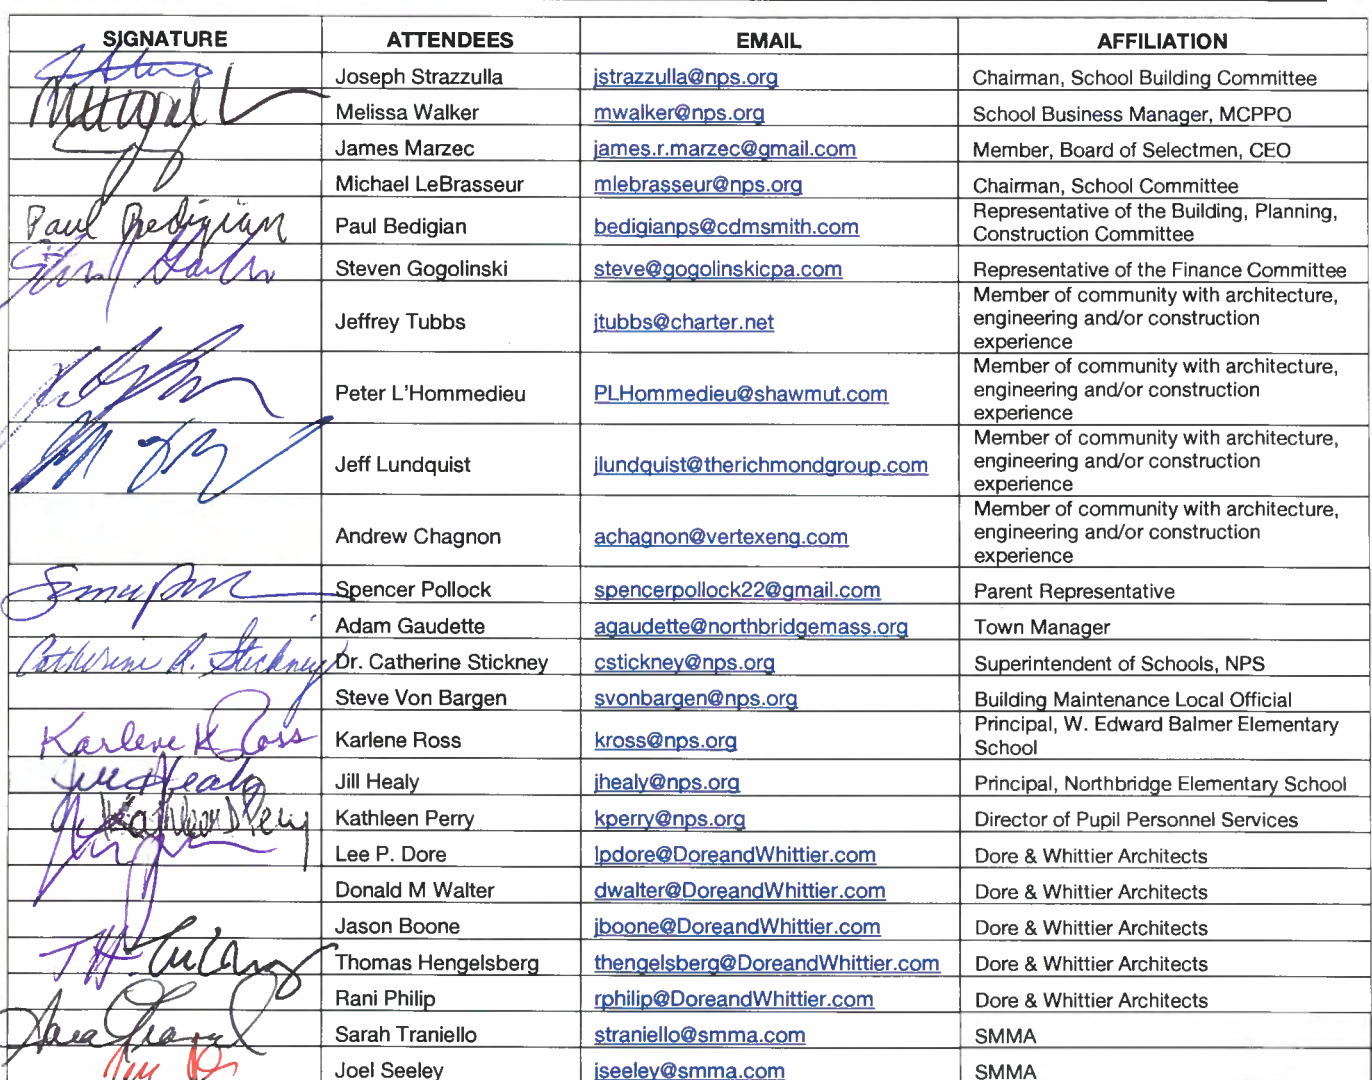 SIGNATURE ATTENDEES EMAIL AFFILIATION
Joseph Strazzulla jstrazzulla@nps.org Chairman, School Building Committee
Melissa Walker mwalker@nps.org School Business Manager, MCPPO
James Marzec james.r.marzec@gmail.com Member, Board of Selectmen, CEO
Michael LeBrasseur mlebrasseur@nps.org Chairman, School Committee
Paul Bedigian Paul Bedigian bedigianps@cdmsmith.com Representative of the Building, Planning,
Construction Committee
Steven Gogolinski steve@gogolinskicpa.com Representative of the Finance Committee
Jeffrey Tubbs jtubbs@charter.net Member of community with architecture,
engineering and/or construction
experience
Peter L'Hommedieu PLHommedieu@shawmut.com Member of community with architecture,
engineering and/or construction
experience
Jeff Lundquist jlundquist@therichmondgroup.com Member of community with architecture,
engineering and/or construction
experience
Andrew Chagnon achagnon@vertexeng.com Member of community with architecture,
engineering and/or construction
experience
Spencer Pollock spencerpollock22@gmail.com Parent Representative
Adam Gaudette agaudette@northbridgemass.org Town Manager
Catherine R. Stickney Dr. Catherine Stickney cstickney@nps.org Superintendent of Schools, NPS
Steve Von Bargen svonbargen@nps.org Building Maintenance Local Official
Karlene K Ross Karlene Ross kross@nps.org Principal, W. Edward Balmer Elementary
School
Jill Healy Jill Healy jhealy@nps.org Principal, Northbridge Elementary School
Kathleen D Perry Kathleen Perry kperry@nps.org Director of Pupil Personnel Services
Lee P. Dore lpdore@DoreandWhittier.com Dore & Whittier Architects
Donald M Walter dwalter@DoreandWhittier.com Dore & Whittier Architects
Jason Boone jboone@DoreandWhittier.com Dore & Whittier Architects
Thomas Hengelsberg thengelsberg@DoreandWhittier.com Dore & Whittier Architects
Rani Philip rphilip@DoreandWhittier.com Dore & Whittier Architects
Sarah Traniello straniello@smma.com SMMA
Joel Seeley jseeley@smma.com SMMA